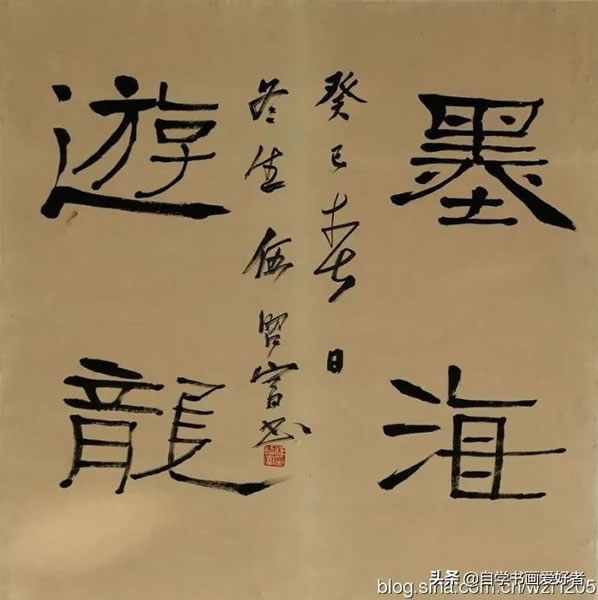 墨海
遊龍
癸巳春日
冬生伍昭富书
头条 @自学书画爱好者
blog.sina.com.cn/wzf1205